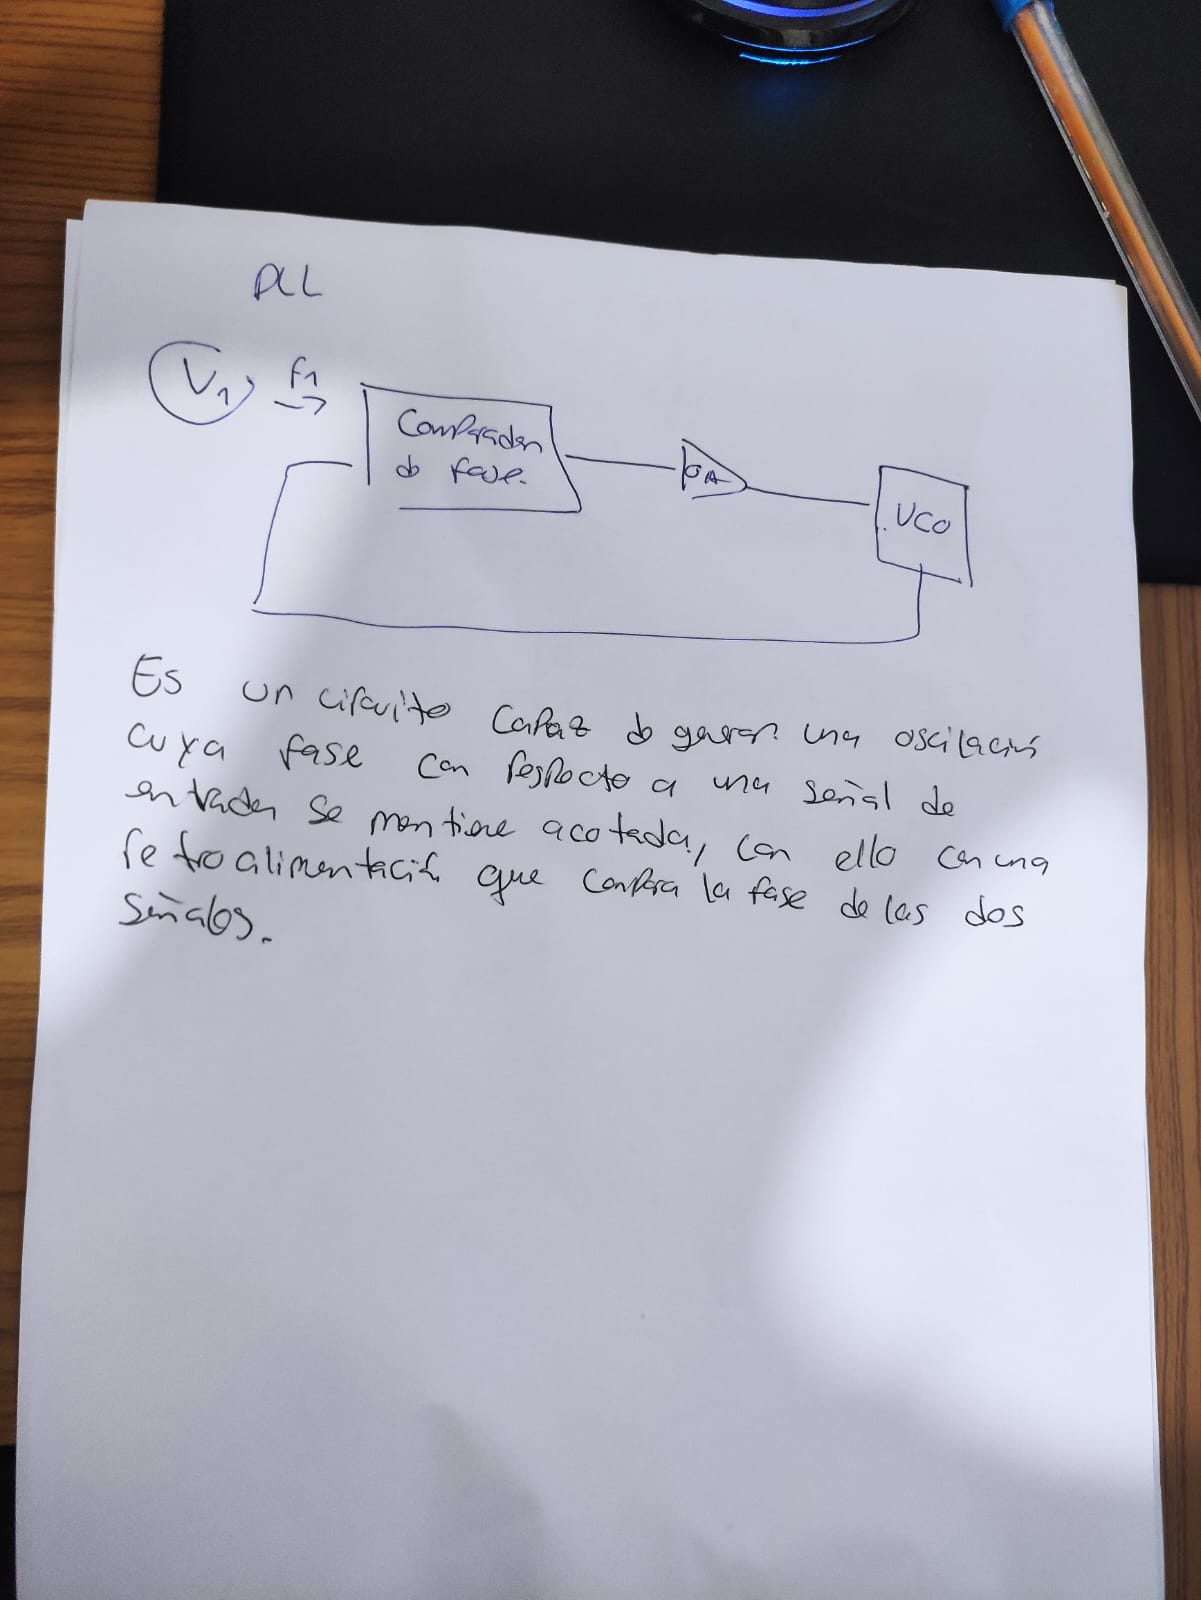 PLL
V1 f1
Comparador
de fase.
OA
VCO
Es un circuito capaz de generar una oscilación
cuya fase con respecto a una señal de
entrada se mantiene acotada, con ello con una
retroalimentación que compara la fase de las dos
señales.